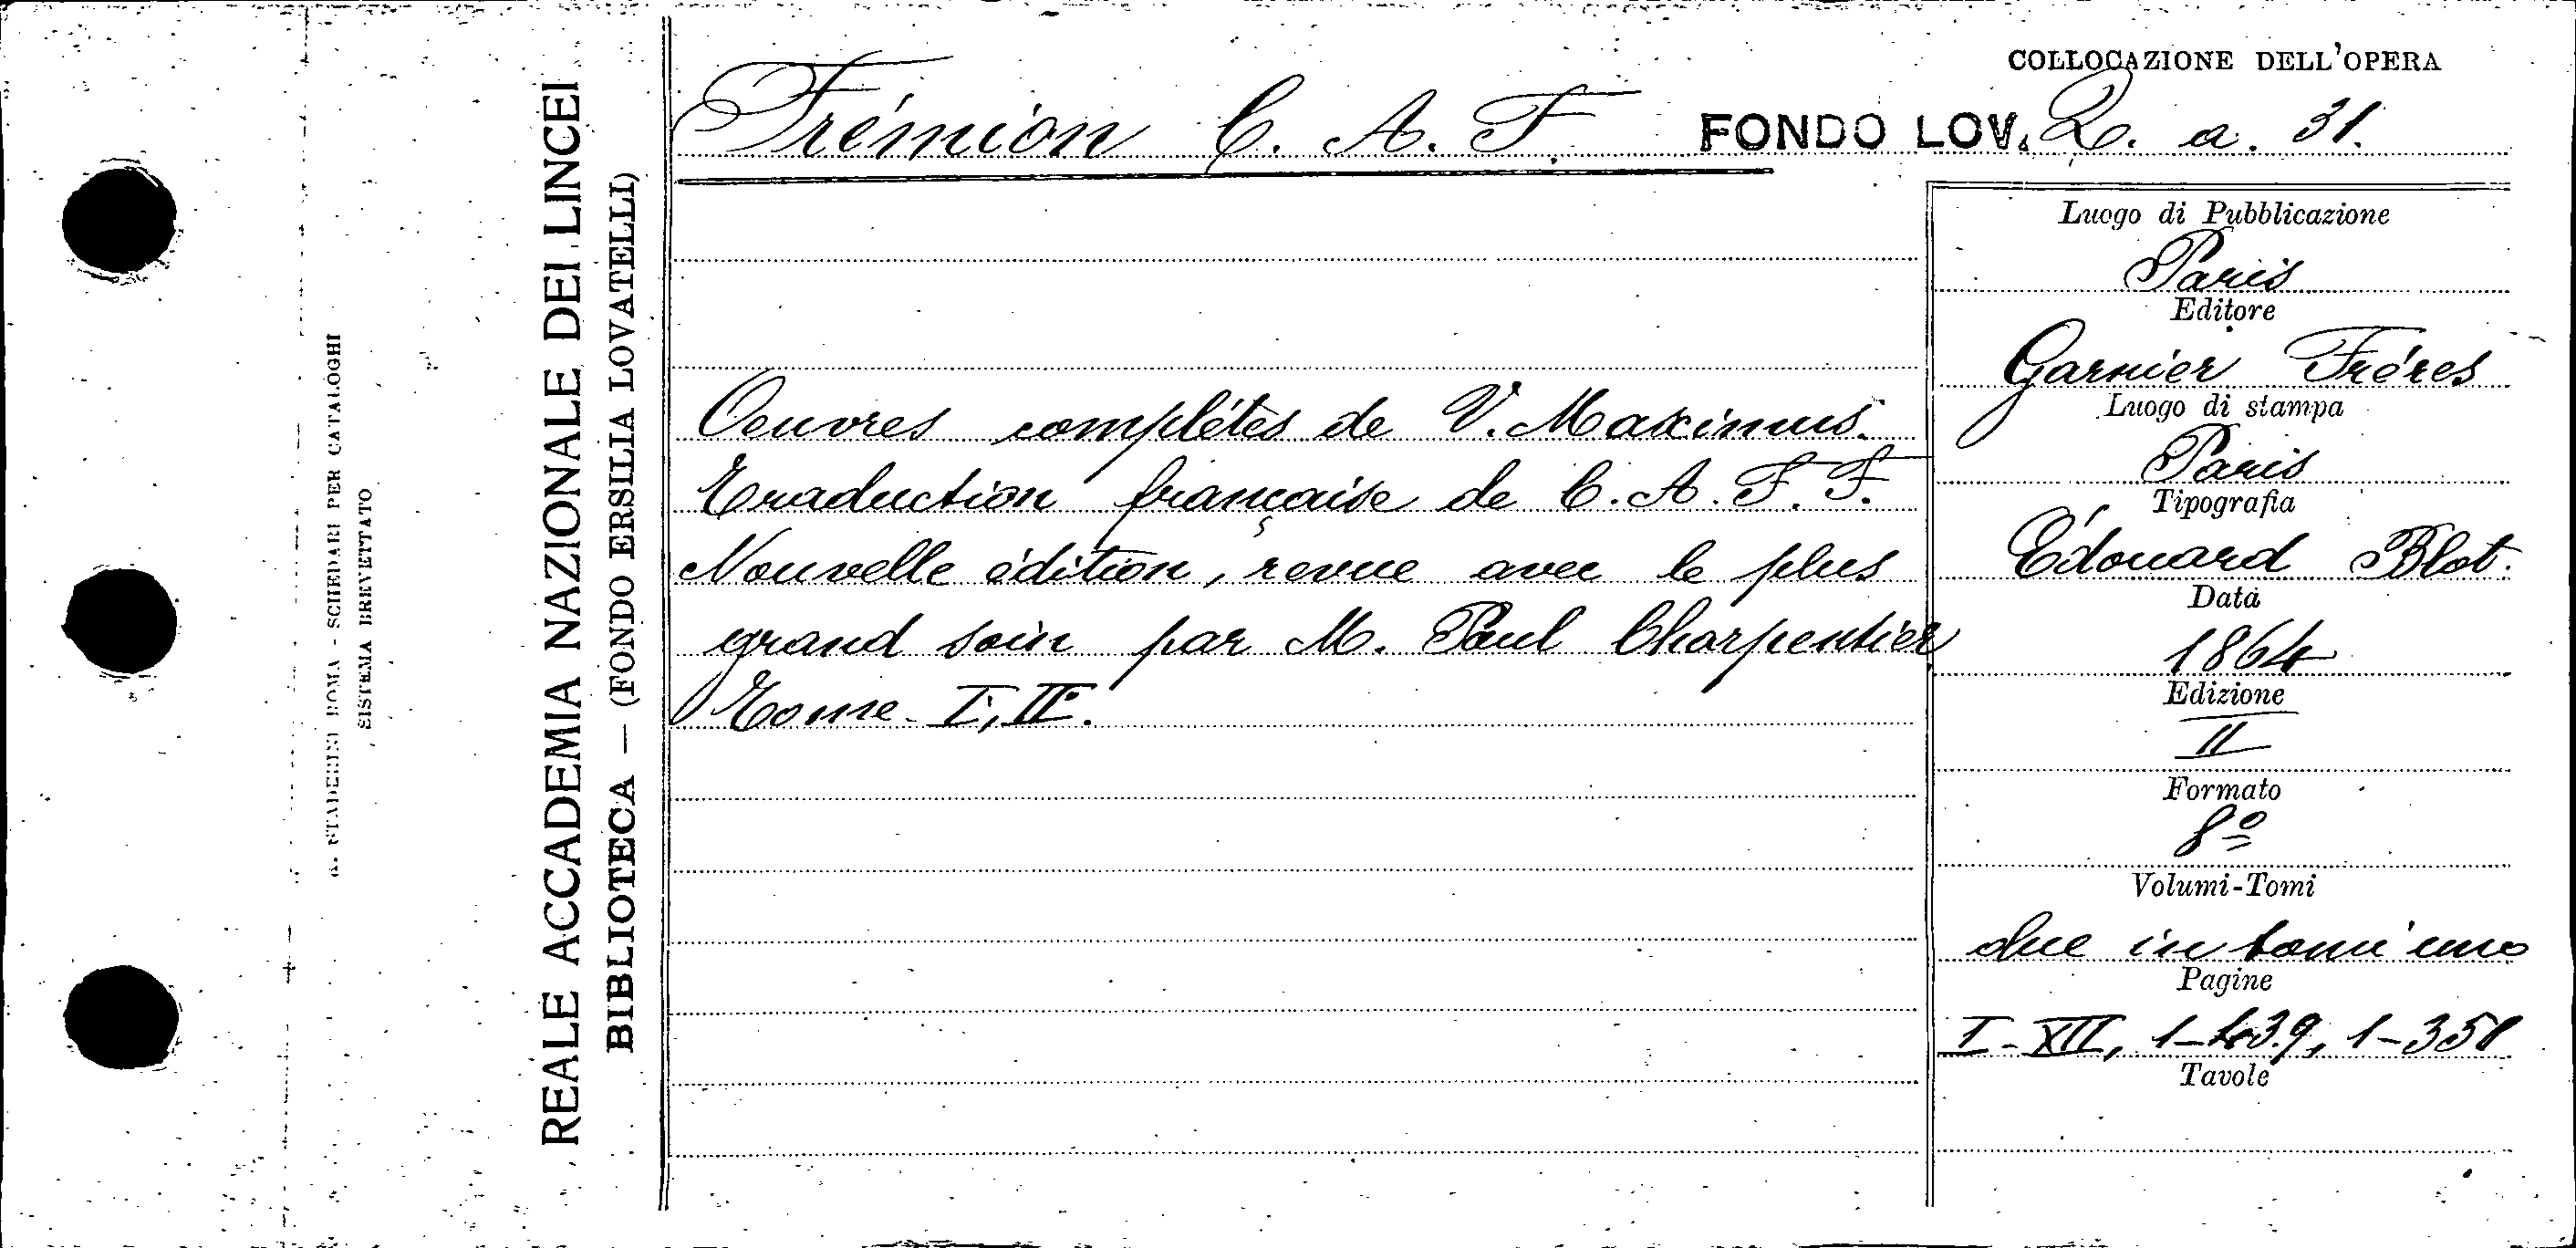 COLLOCAZIONE DELL'OPERA
Frémion C. A. F. FONDO LOV. 2. a. 31.
REALE ACCADEMIA NAZIONALE DEI LINCEI
BIBLIOTECA — (FONDO ERSILIA LOVATELLI)
STADERINI ROMA - SCHEDARI PER CATALOGHI
SISTEMA BREVETTATO
Oeuvres complétes de V. Maximus.
Traduction française de C. A. F. F.
Nouvelle édition, revue avec le plus
grand soin par M. Paul Charpentier
Tome I, II.
Luogo di Pubblicazione
Paris
Editore
Garnier Fréres
Luogo di stampa
Paris
Tipografia
Édouard Blot.
Data
1864
Edizione
II
Formato
8º
Volumi-Tomi
due in tomi uno
Pagine
I-XII, 1-439, 1-351
Tavole